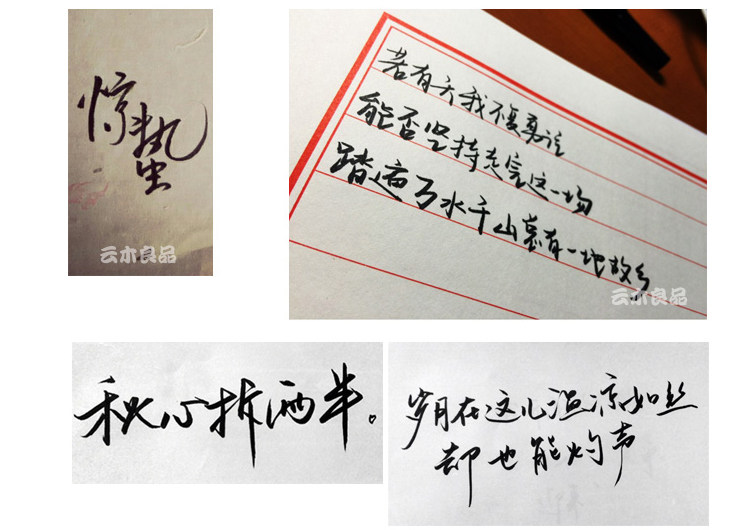 惊蛰
云木良品
若有天我不复勇往
能否坚持走完这一场
踏遍万水千山总有一地故乡
云木良品
秋心拆两半。
岁月在这儿温凉如丝
却也能灼声